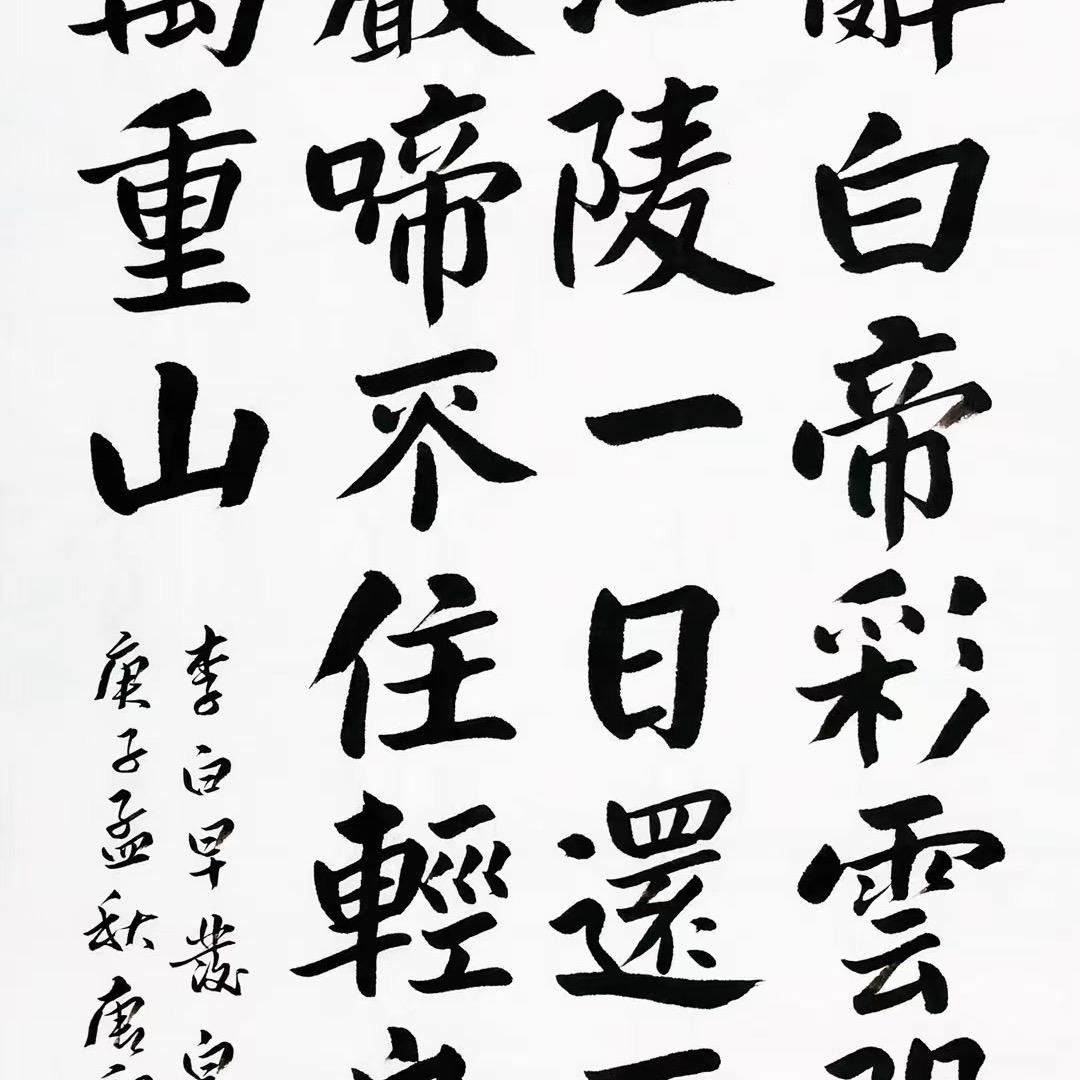 白帝彩雲
陵一日還
啼不住輕
重山
李白早發白
庚子孟秋唐